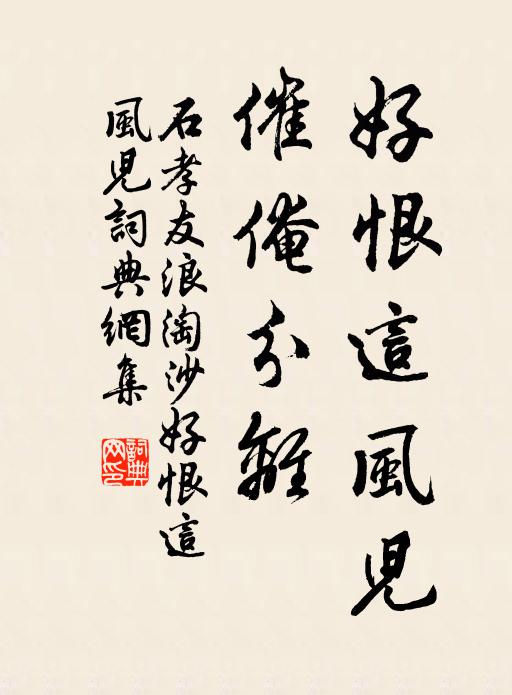 好恨這風兒
催俺分離
石孝友浪淘沙好恨這
風兒詞典網集
詞典
网印